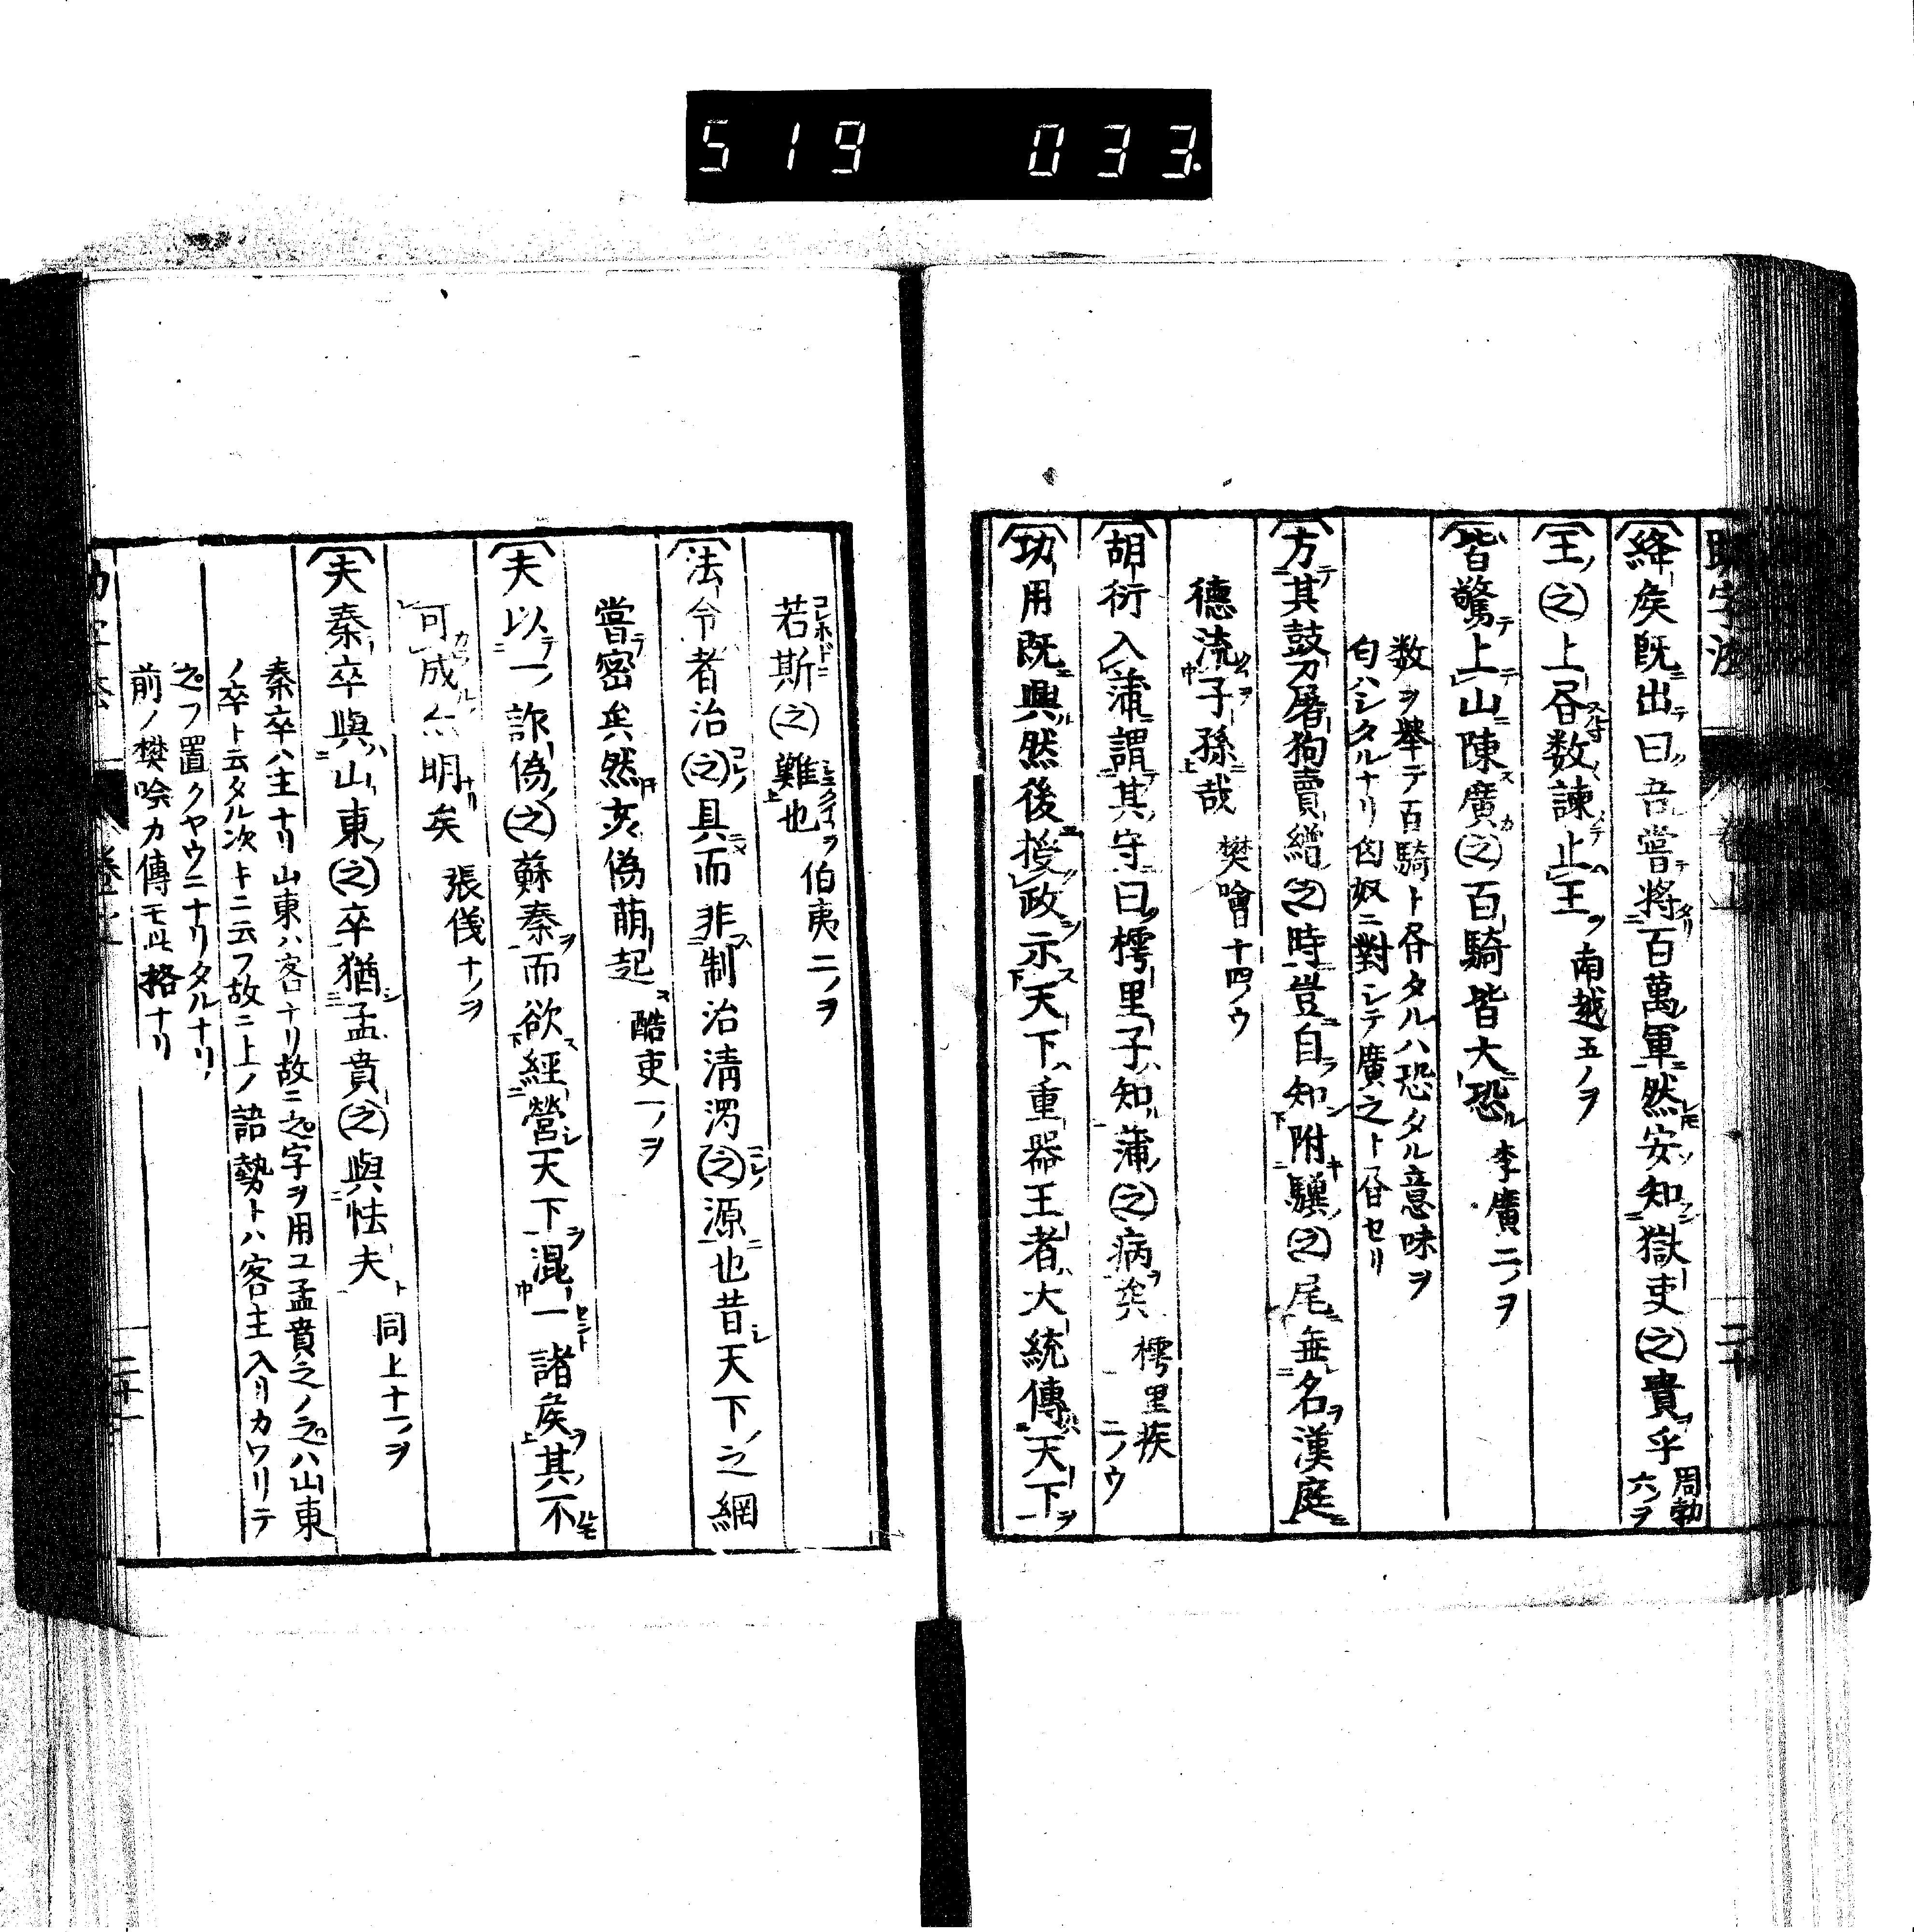 519 033.
絳矦既出曰吾嘗將百萬軍然安知獄吏之貴乎 周勃六ノヲ
王之上㫺数諫止王 南越五ノヲ
皆驚上山陳廣之百騎皆大恐 李廣二ノヲ
数ヲ舉テ百騎ト㫺タルハ恐タル意味ヲ
匂ハシタルナリ匈奴ニ對シテ廣之ト㫺セリ
方其鼓刀屠狗賣繒之時豈自知附驥之尾垂名漢庭
德流子孫哉 樊噲十四ノウ
胡衍入蒲謂其守曰樗里子知蒲之病矣 樗里疾二ノウ
功用既興然後授政示天下重器王者大統傳天下
若斯之難也 伯夷二ノヲ
法令者治之具而非制治清濁之源也昔天下之網
嘗密矣然姦偽萌起 酷吏一ノヲ
夫以一詐偽之蘇秦而欲經營天下混一諸矦其不
可成亦明矣 張儀十ノヲ
夫秦卒與山東之卒猶孟賁之與怯夫 同上十一ノヲ
秦卒ハ主ナリ山東ハ客ナリ故ニ之字ヲ用ユ孟賁之ノ之ハ山東
ノ卒ト云タル次キニ云フ故ニ上ノ語勢トハ客主入リカワリテ
之フ置クヤウニナリタルナリ
前ノ樊噲カ傳モ此格ナリ